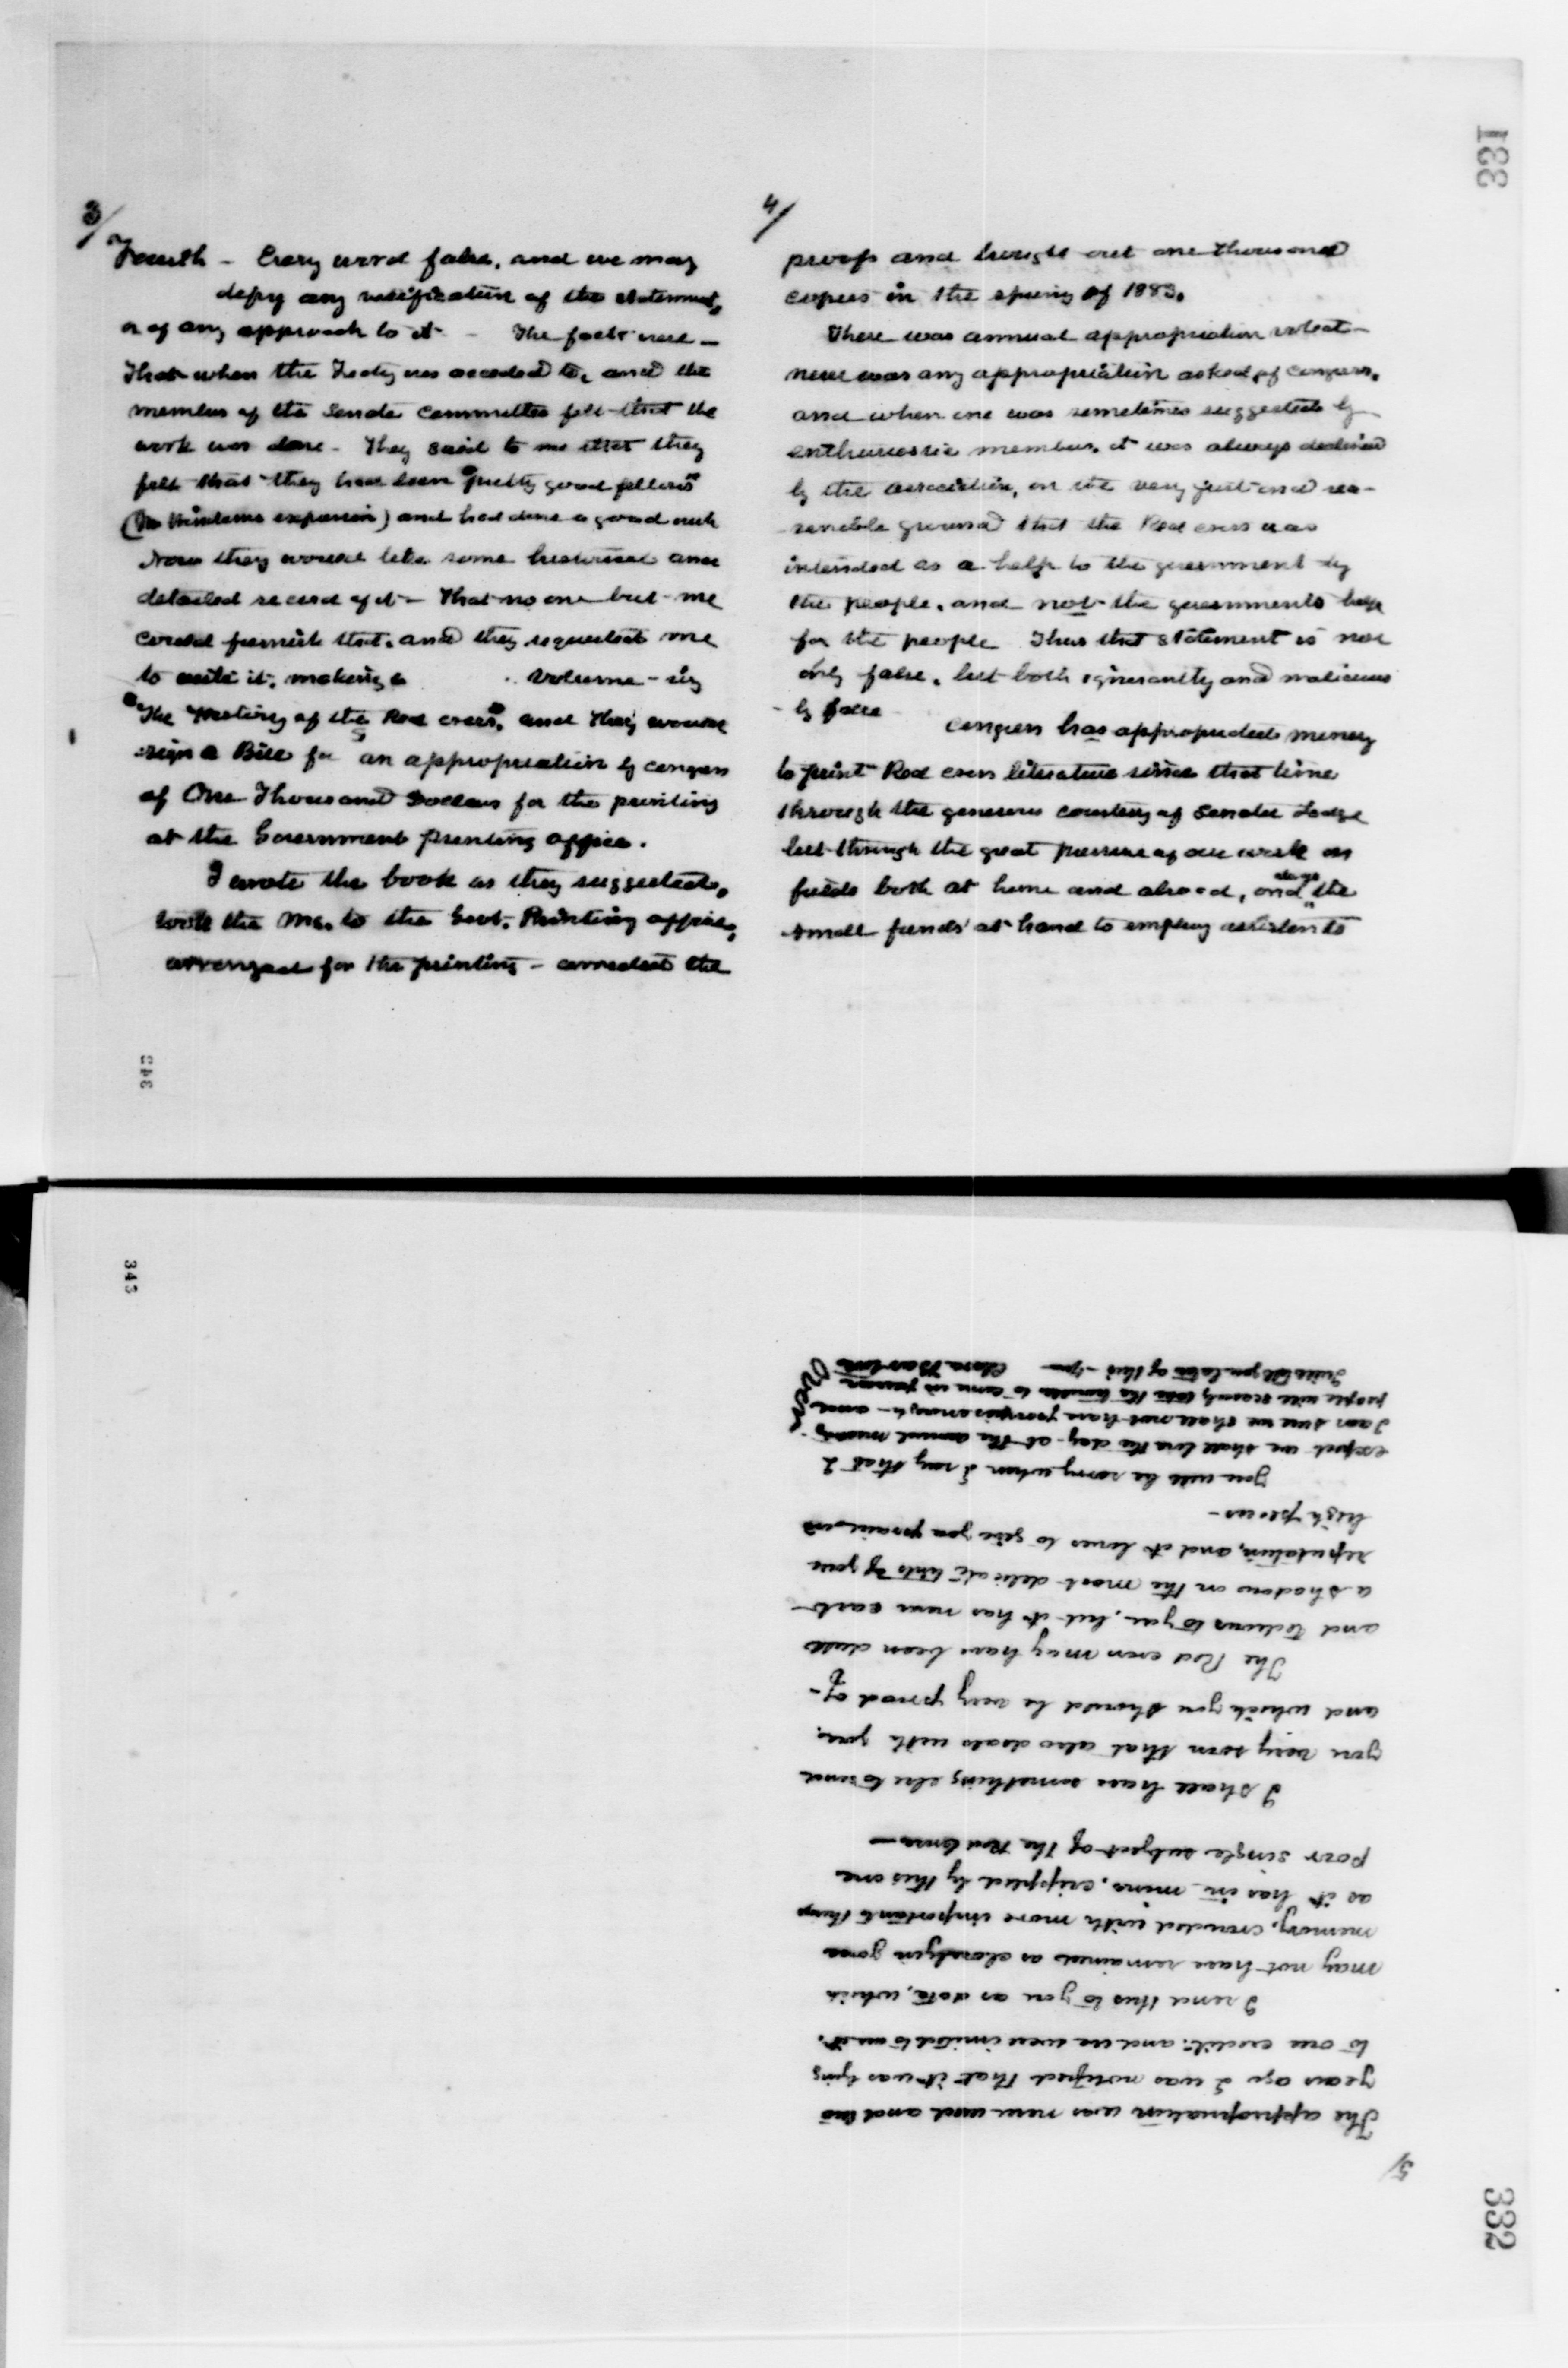 331
3/
Fourth - Every word false, and we may
defy any verification of the statement,
or of any approach to it - The facts were -
That when the Treaty was acceded to, and the
members of the Senate Committee felt that the
work was done - They said to me that they
felt that they had been "pretty good fellows"
(Mr Windoms expression) and had done a good work
Now they would like some historical and
detailed record of it - That no one but me
could furnish that, and they requested me
to write it, making a volume -
"The History of the Red Cross", and they would
sign a Bill for an appropriation by congress
of One Thousand Dollars for the printing
at the Government printing office.
I wrote the book as they suggested,
took the Ms. to the Govt. Printing office,
arranged for the printing - corrected the
343
4/
proofs and brought out one thousand
copies in the spring of 1883.
There was annual appropriation
never was any appropriation asked of congress,
and when one was sometimes suggested by
enthusiastic members, it was always declined
by the association, on the very just and rea-
sonable ground that the Red cross was
intended as a help to the government by
the people, and not the governments help
for the people Thus that statement is not
only false, but both ignorantly and malicious
- ly false
congress has appropriated money
to print Red cross literature since that time
through the generous courtesy of Senator Lodge
but through the great pressure of our work on
fields both at home and abroad, and always the
small funds at hand to employ assistants
332
5/
The appropriation was never used and two
years ago I was notified that it was lying
to our credit: and we were invited to use it.
I send this to you as data, which
may not have remained as clearly in your
memory, crowded with more important things
as it has in mine, crippled by this one
poor single subject of the Red Cross -
I shall have something else to send
you very soon that also deals with you,
and which you should be very proud of -
The Red cross may have been dull
and tedious to you, but it has never cast
a shadow on the most delicate tints of your
reputation, and it loves to give you praise in
high places -
You will be sorry when I say that I
expect we shall lose the day - at the annual meeting.
I am sure we shall not have proxies enough - and
people will scarcely take the trouble to come in person
I will tell you later of this - Yrs Clara Barton
Over
343